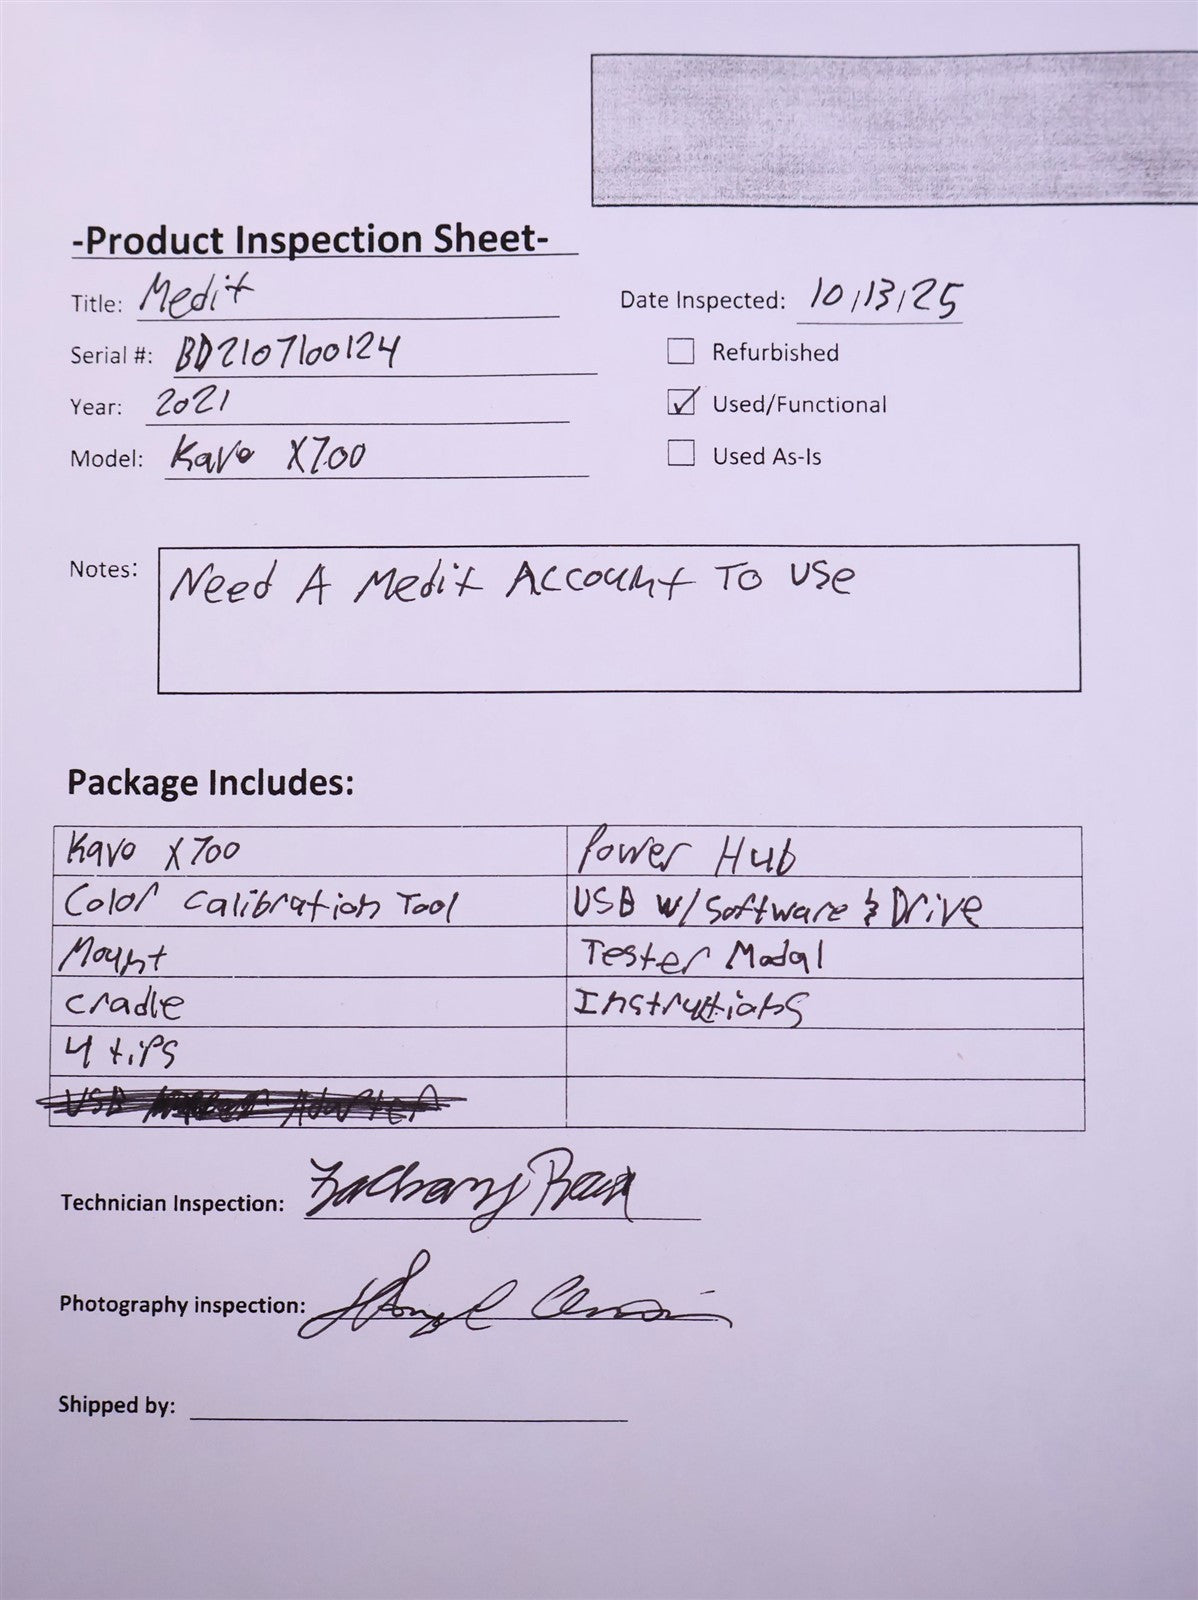 -Product Inspection Sheet-
Title: Medit
Date Inspected: 10/13/25
Serial #: BD2107100124
Refurbished
Year: 2021
Used/Functional
Model: Kavo X700
Used As-Is
Notes: Need A Medit Account To Use
Package Includes:
Kavo X700 Power Hub
Color Calibration Tool USB w/ Software & Drive
Mount Tester Modal
Cradle Instructions
4 tips
USB Adapter
Technician Inspection: Zachary
Photography inspection:
Shipped by: